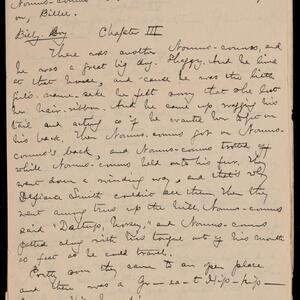 on, Billee.
Billy Boy Chapter III
There was another Nonnus-connus, and
he was a great big dog. Shaggy. And he lived
at that house, and 'cause he was the little
name-sake he felt sorry that she lost
her hair-ribbon. And he came up wagging his
tail and acting as if he wanted her to get on
his back. Then Nonnus-connus got on Nonnus-
connus's back, and Nonnus-connus trotted off
while Nonnus-connus held onto his fur. They
went down a winding way, and that's why
Defiance Smith couldn't see them. Then they
went among trees up the hill. Nonnus-connus
said " and Nonnus-connus
along with his tongue out of his mouth
as fast as he could travel.
Pretty soon they came to an open place
and there was a Gr-ea-t Hip-hip-